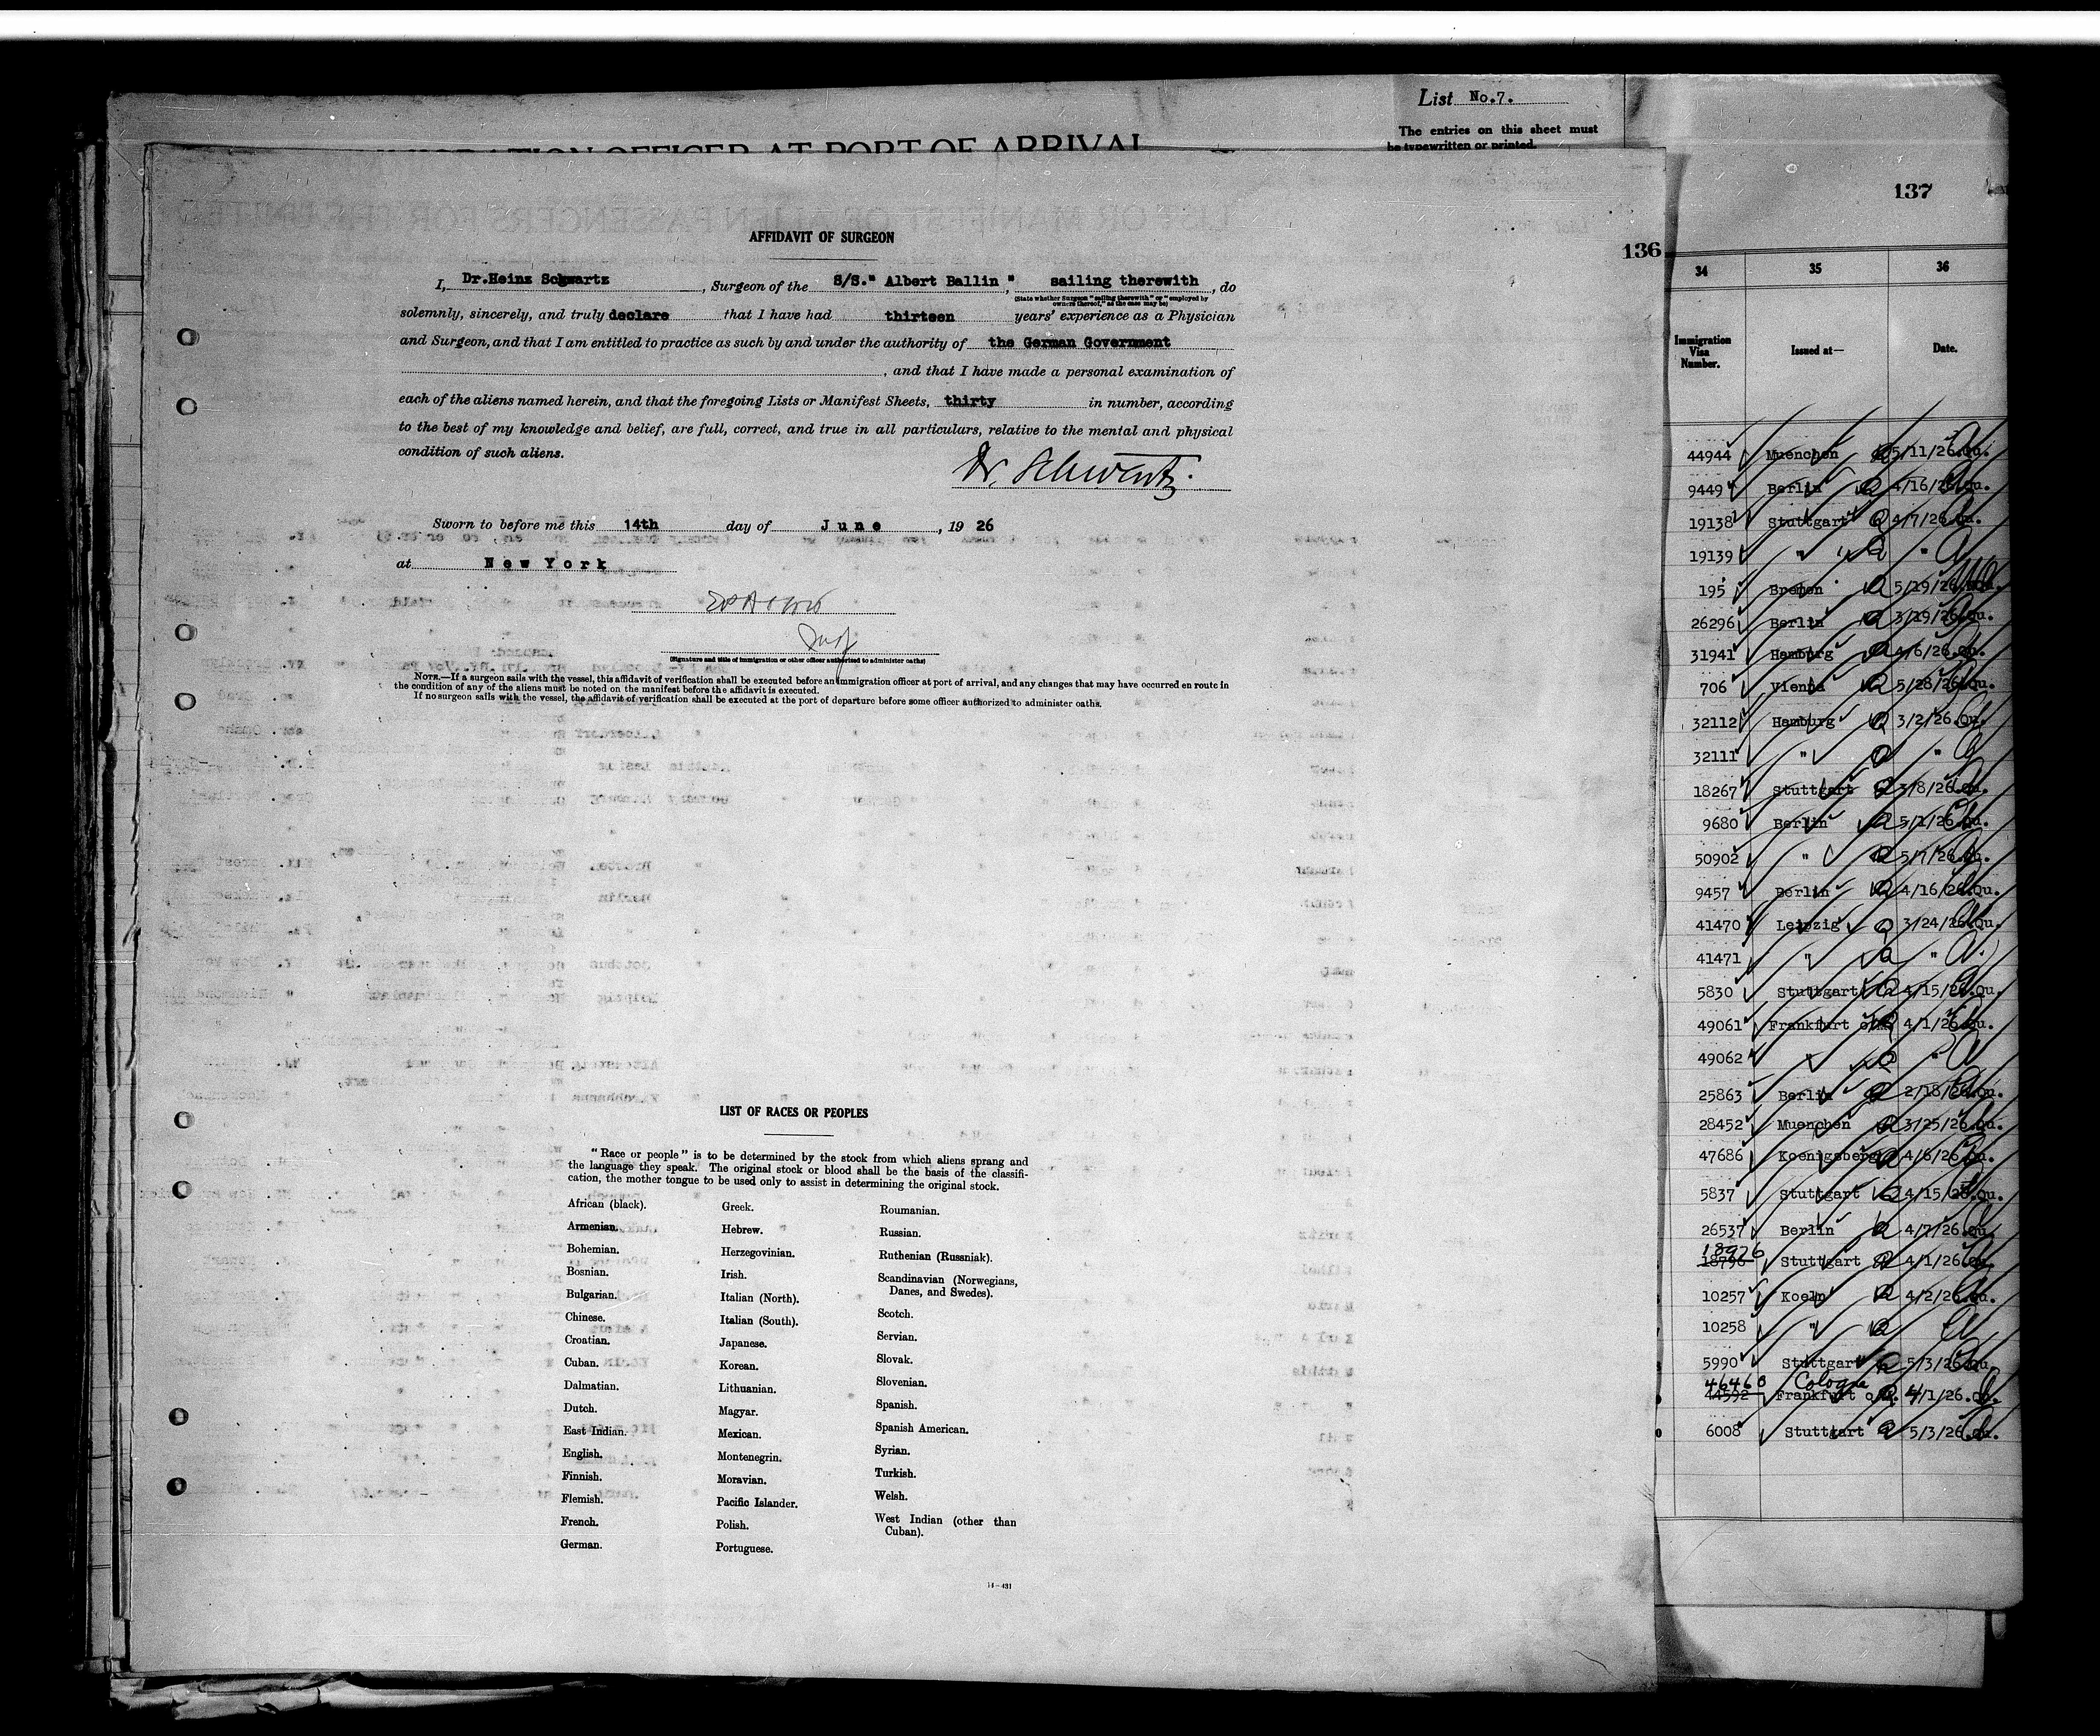 List No.7.
The entries on this sheet must
be typewritten or printed.
IMMIGRATION OFFICER AT PORT OF ARRIVAL
137
136
AFFIDAVIT OF SURGEON
I, Dr.Heinz Schwartz, Surgeon of the S/S." Albert Ballin ", sailing therewith, do
(State whether Surgeon "sailing therewith" or "employed by
owners thereof," as the case may be)
solemnly, sincerely, and truly declare that I have had thirteen years' experience as a Physician
and Surgeon, and that I am entitled to practice as such by and under the authority of the German Government
, and that I have made a personal examination of
each of the aliens named herein, and that the foregoing Lists or Manifest Sheets, thirty in number, according
to the best of my knowledge and belief, are full, correct, and true in all particulars, relative to the mental and physical
condition of such aliens.
Dr. Schwartz.
Sworn to before me this 14th day of June, 19 26
at New York
(Signature and title of immigration or other officer authorized to administer oaths)
NOTE.—If a surgeon sails with the vessel, this affidavit of verification shall be executed before an immigration officer at port of arrival, and any changes that may have occurred en route in
the condition of any of the aliens must be noted on the manifest before the affidavit is executed.
If no surgeon sails with the vessel, the affidavit of verification shall be executed at the port of departure before some officer authorized to administer oaths.
LIST OF RACES OR PEOPLES
"Race or people" is to be determined by the stock from which aliens sprang and
the language they speak. The original stock or blood shall be the basis of the classifi-
cation, the mother tongue to be used only to assist in determining the original stock.
African (black).
Armenian.
Bohemian.
Bosnian.
Bulgarian.
Chinese.
Croatian.
Cuban.
Dalmatian.
Dutch.
East Indian.
English.
Finnish.
Flemish.
French.
German.
Greek.
Hebrew.
Herzegovinian.
Irish.
Italian (North).
Italian (South).
Japanese.
Korean.
Lithuanian.
Magyar.
Mexican.
Montenegrin.
Moravian.
Pacific Islander.
Polish.
Portuguese.
Roumanian.
Russian.
Ruthenian (Russniak).
Scandinavian (Norwegians,
Danes, and Swedes).
Scotch.
Servian.
Slovak.
Slovenian.
Spanish.
Spanish American.
Syrian.
Turkish.
Welsh.
West Indian (other than
Cuban).
14-431
34 35 36
Immigration
Visa
Number.
Issued at—
Date.
44944 Muenchen 5/11/26.Qu.
9449 Berlin 4/16/26.Qu.
19138 Stuttgart 4/7/26.Qu.
19139 " "
195 Bremen 5/19/26.
26296 Berlin 3/19/26.Qu.
31941 Hamburg 4/6/26.Qu.
706 Vienna 5/28/26.Qu.
32112 Hamburg 3/2/26.Qu.
32111 " "
18267 Stuttgart 3/8/26.Qu.
9680 Berlin 5/1/26.Qu.
50902 " 5/7/26.Qu.
9457 Berlin 4/16/26.Qu.
41470 Leipzig 3/24/26.Qu.
41471 " "
5830 Stuttgart 4/15/26.Qu.
49061 Frankfurt o/M. 4/1/26.Qu.
49062 " "
25863 Berlin 2/18/26.Qu.
28452 Muenchen 3/25/26.Qu.
47686 Koenigsberg 4/6/26.Qu.
5837 Stuttgart 4/15/26.Qu.
26537 Berlin 4/7/26.Qu.
18926
18796 Stuttgart 4/1/26.Qu.
10257 Koeln 4/2/26.Qu.
10258 "
5990 Stuttgart 5/3/26.Qu.
46468 Cologne
44592 Frankfurt o/M. 4/1/26.Qu.
6008 Stuttgart 5/3/26.Qu.